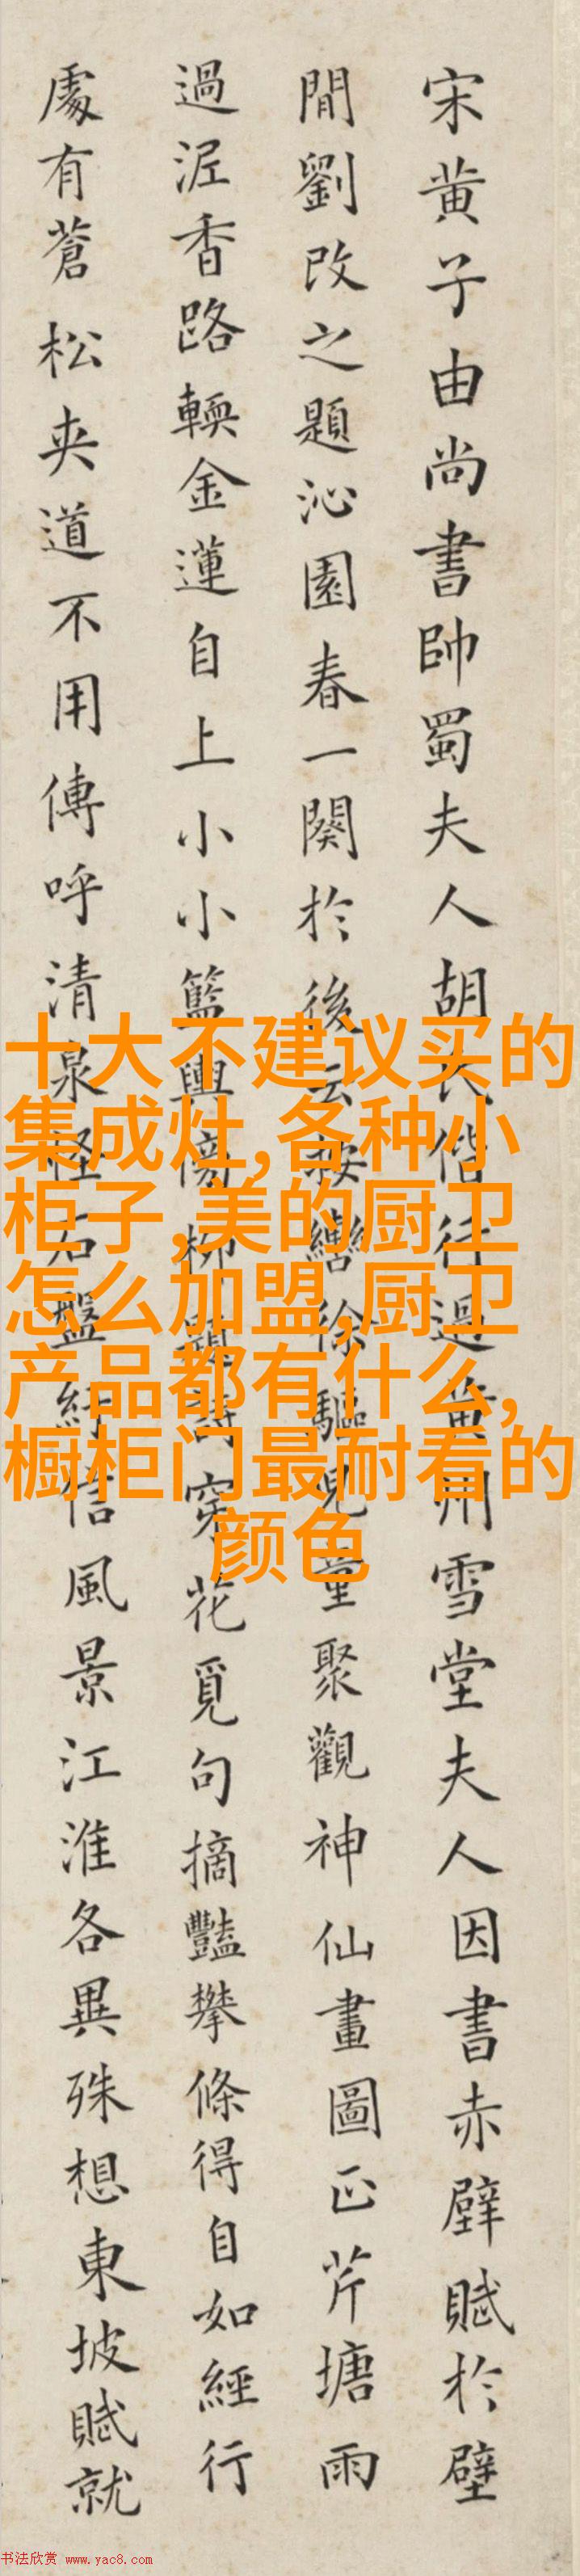 宋黄子由尚書帥蜀夫人胡氏偕行過黄州雪堂夫人因書赤壁賦於壁
間劉改之題沁園春一闋於後云按轡徐驅兒童聚觀神仙畫圖正芹塘雨
過泥香路輭金蓮自上小小籃輿傍柳題詩穿花覓句摘豔攀條得自如經行
處有蒼松夾道不用傳呼清泉怪石盤紆信風景江淮各異殊想東坡賦就
十大不建议买的
集成灶,各种小
柜子,美的厨卫
怎么加盟,厨卫
产品都有什么,
橱柜门最耐看的
颜色
书法欣赏 www.yac8.com